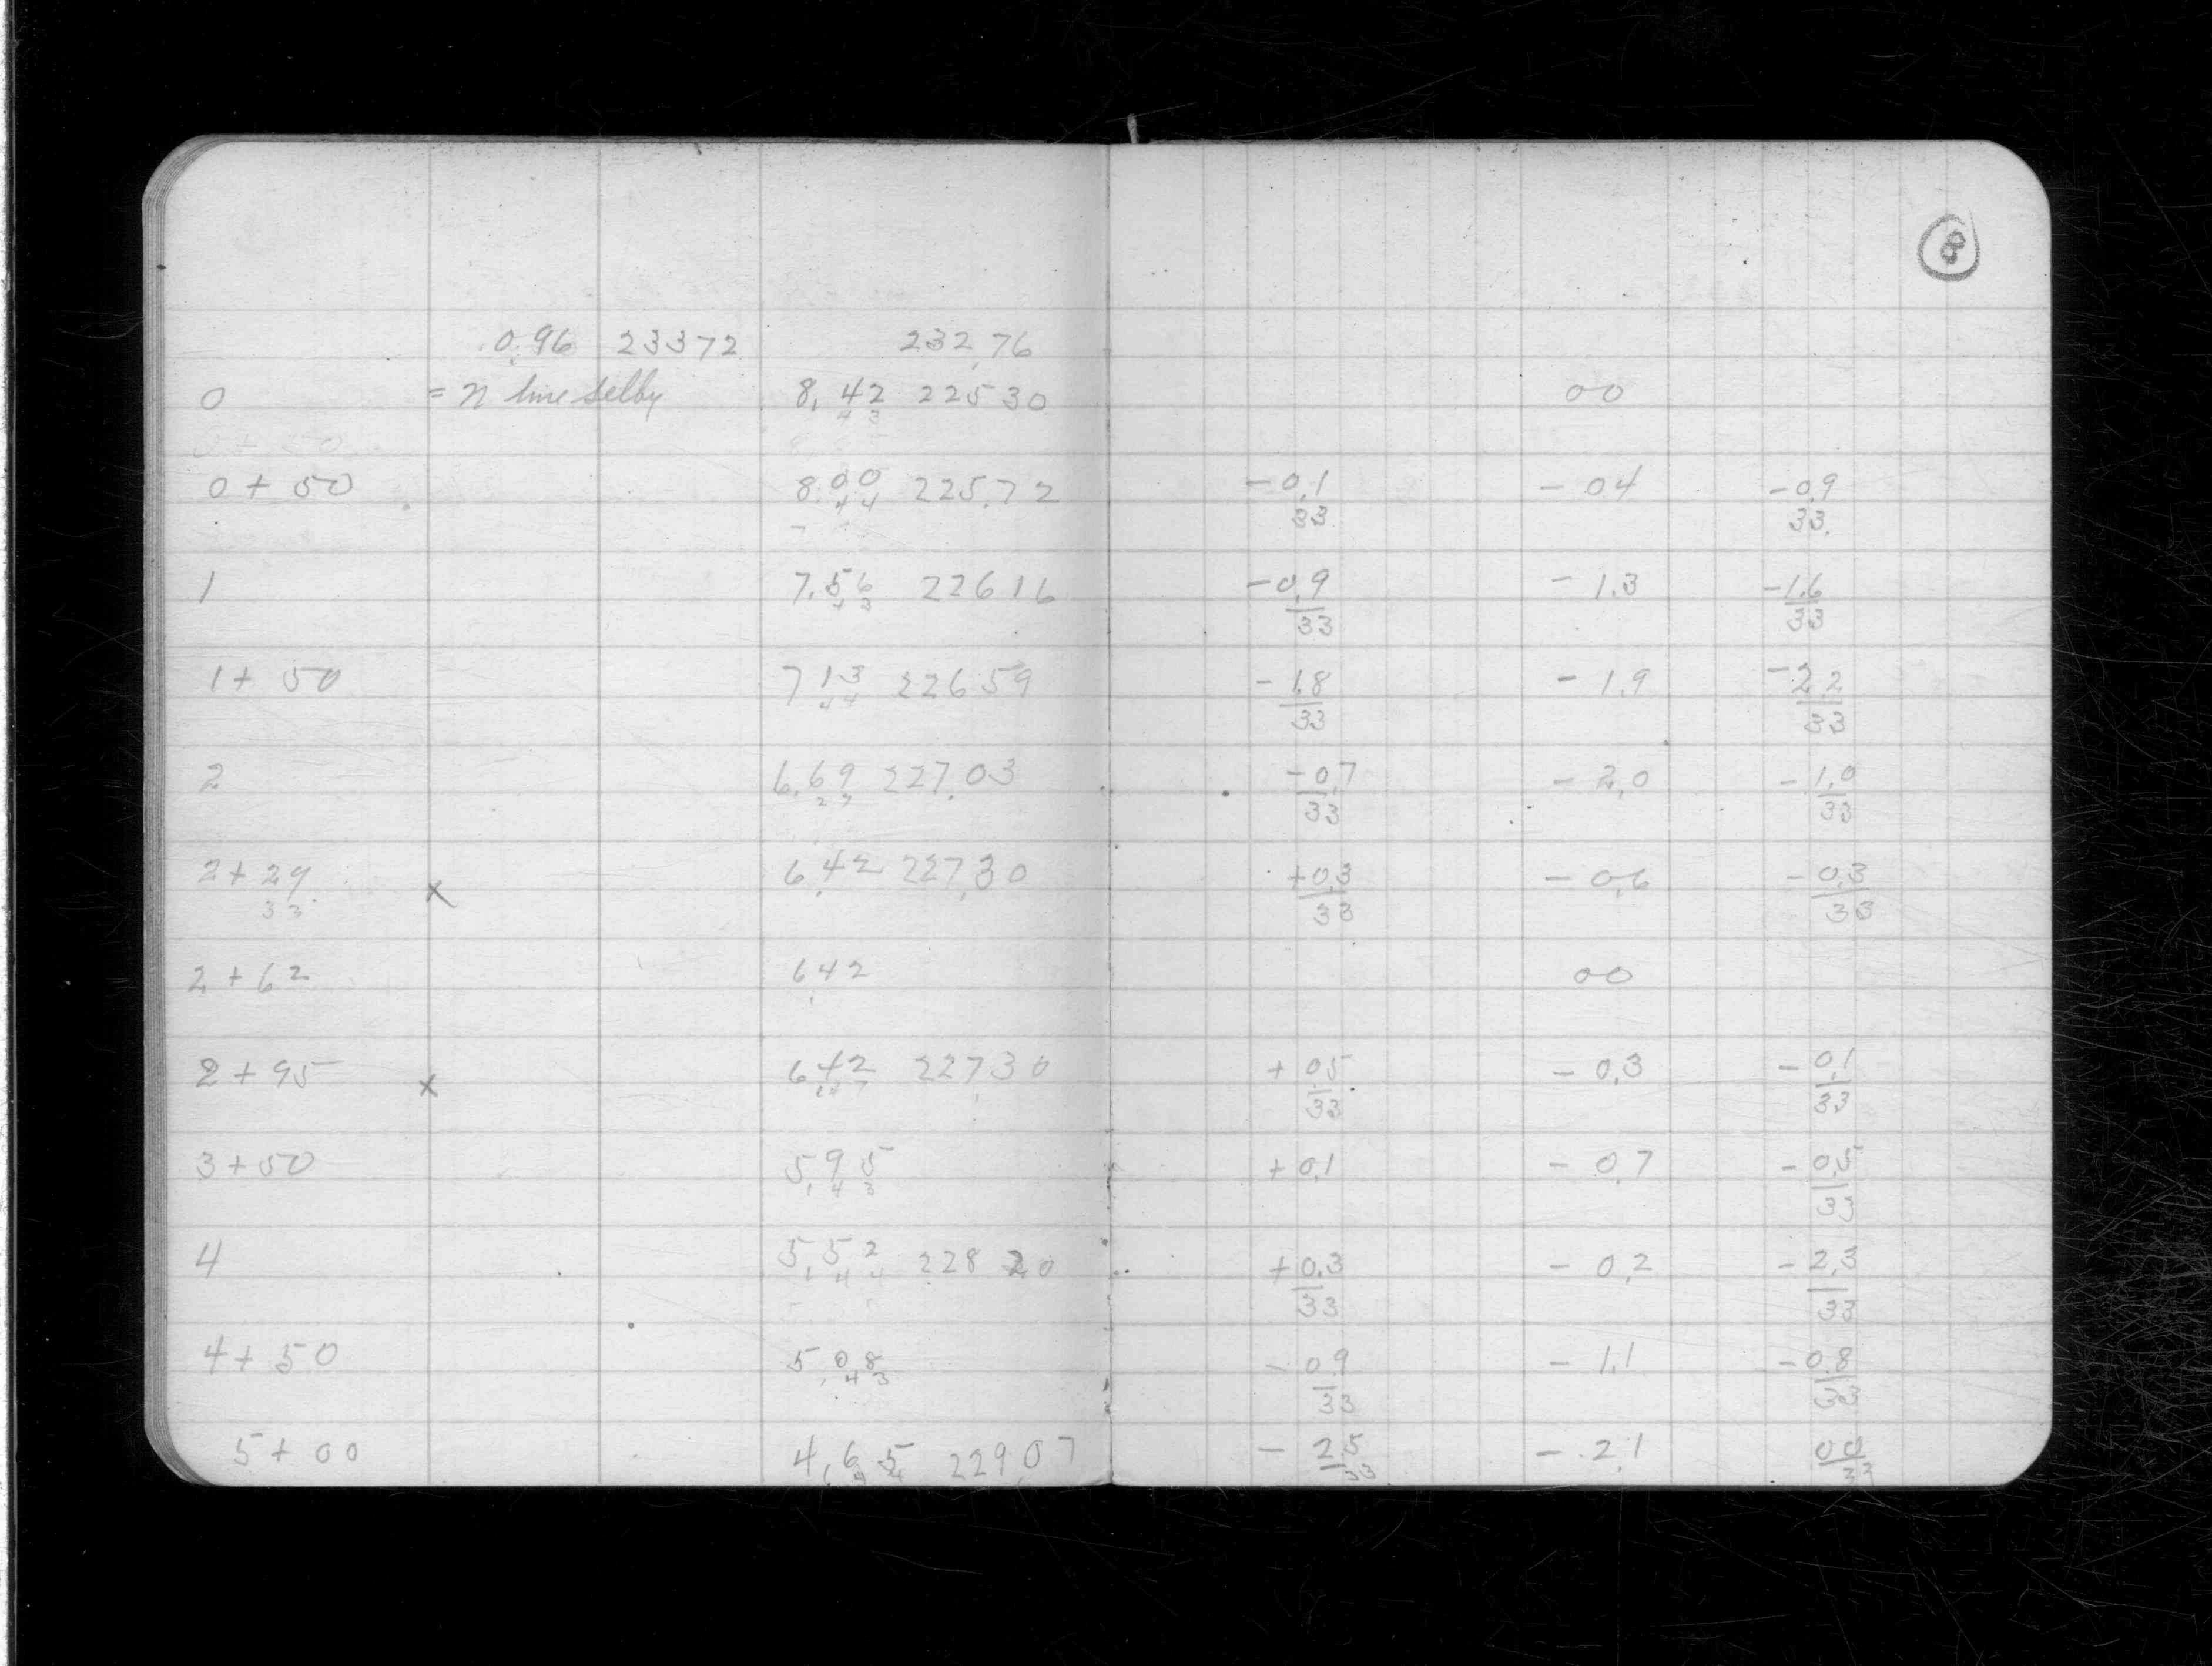 8
0.96 23372 232.76
0 = n line Selby 8.42 22530 00
4 3
0 + 50 8.00 225.72 - 0.1 - 04 - 0.9
4 4 33 33
1 7.56 22616 - 0.9 - 1.3 - 1.6
4 3 33 33
1 + 50 713 22659 - 1.8 - 1.9 - 2 2
4 4 33 33
2 6.69 227.03 - 0.7 - 2.0 - 1.0
2 7 33 33
2 + 29 x 6.42 227.30 + 0.3 - 0.6 - 0.3
3 3 33 33
2 + 62 6.42 00
2 + 95 x 6.42 227.30 + 0.5 - 0.3 - 0.1
33 33
3 + 50 5.95 + 0.1 - 0.7 - 0.5
1 4 3 33
4 5.52 228 20 + 0.3 - 0.2 - 2.3
1 4 4 33 33
4 + 50 5.08 - 0.9 - 1.1 - 0.8
4 3 33 33
5 + 00 4.65 229.07 - 2.5 - 2.1 0.0
33 33